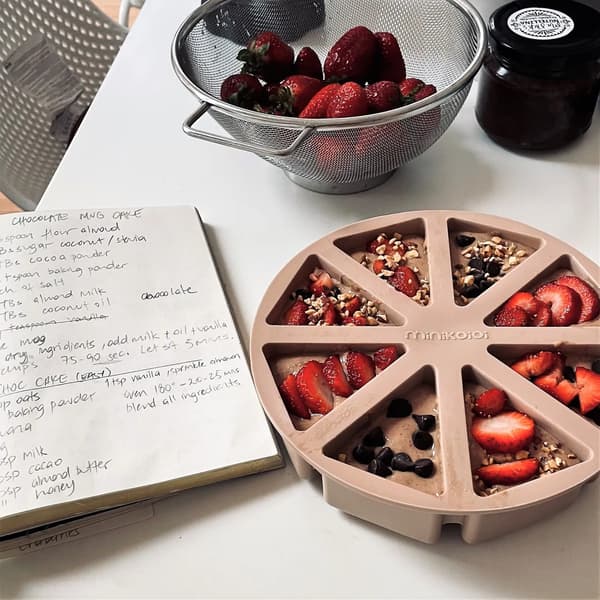 CHOCOLATE MUG CAKE
spoon flour almond
Bs sugar coconut/stevia
TBs cocoa powder
tspoon baking powder
ch of salt
TBs almond milk
TBs coconut oil chocolate
teaspoon vanilla
e mug
dry ingredients, add milk + oil + vanilla
75-90 sec. Let sit 5 mins.
CHOC CAKE (EASY) 1 tsp vanilla, sprinkle cinnamon
p oats oven 180° - 20-25 mins
baking powder blend all ingredients
ana
sp milk
osp cacao
osp almond butter
" honey
minikoioi